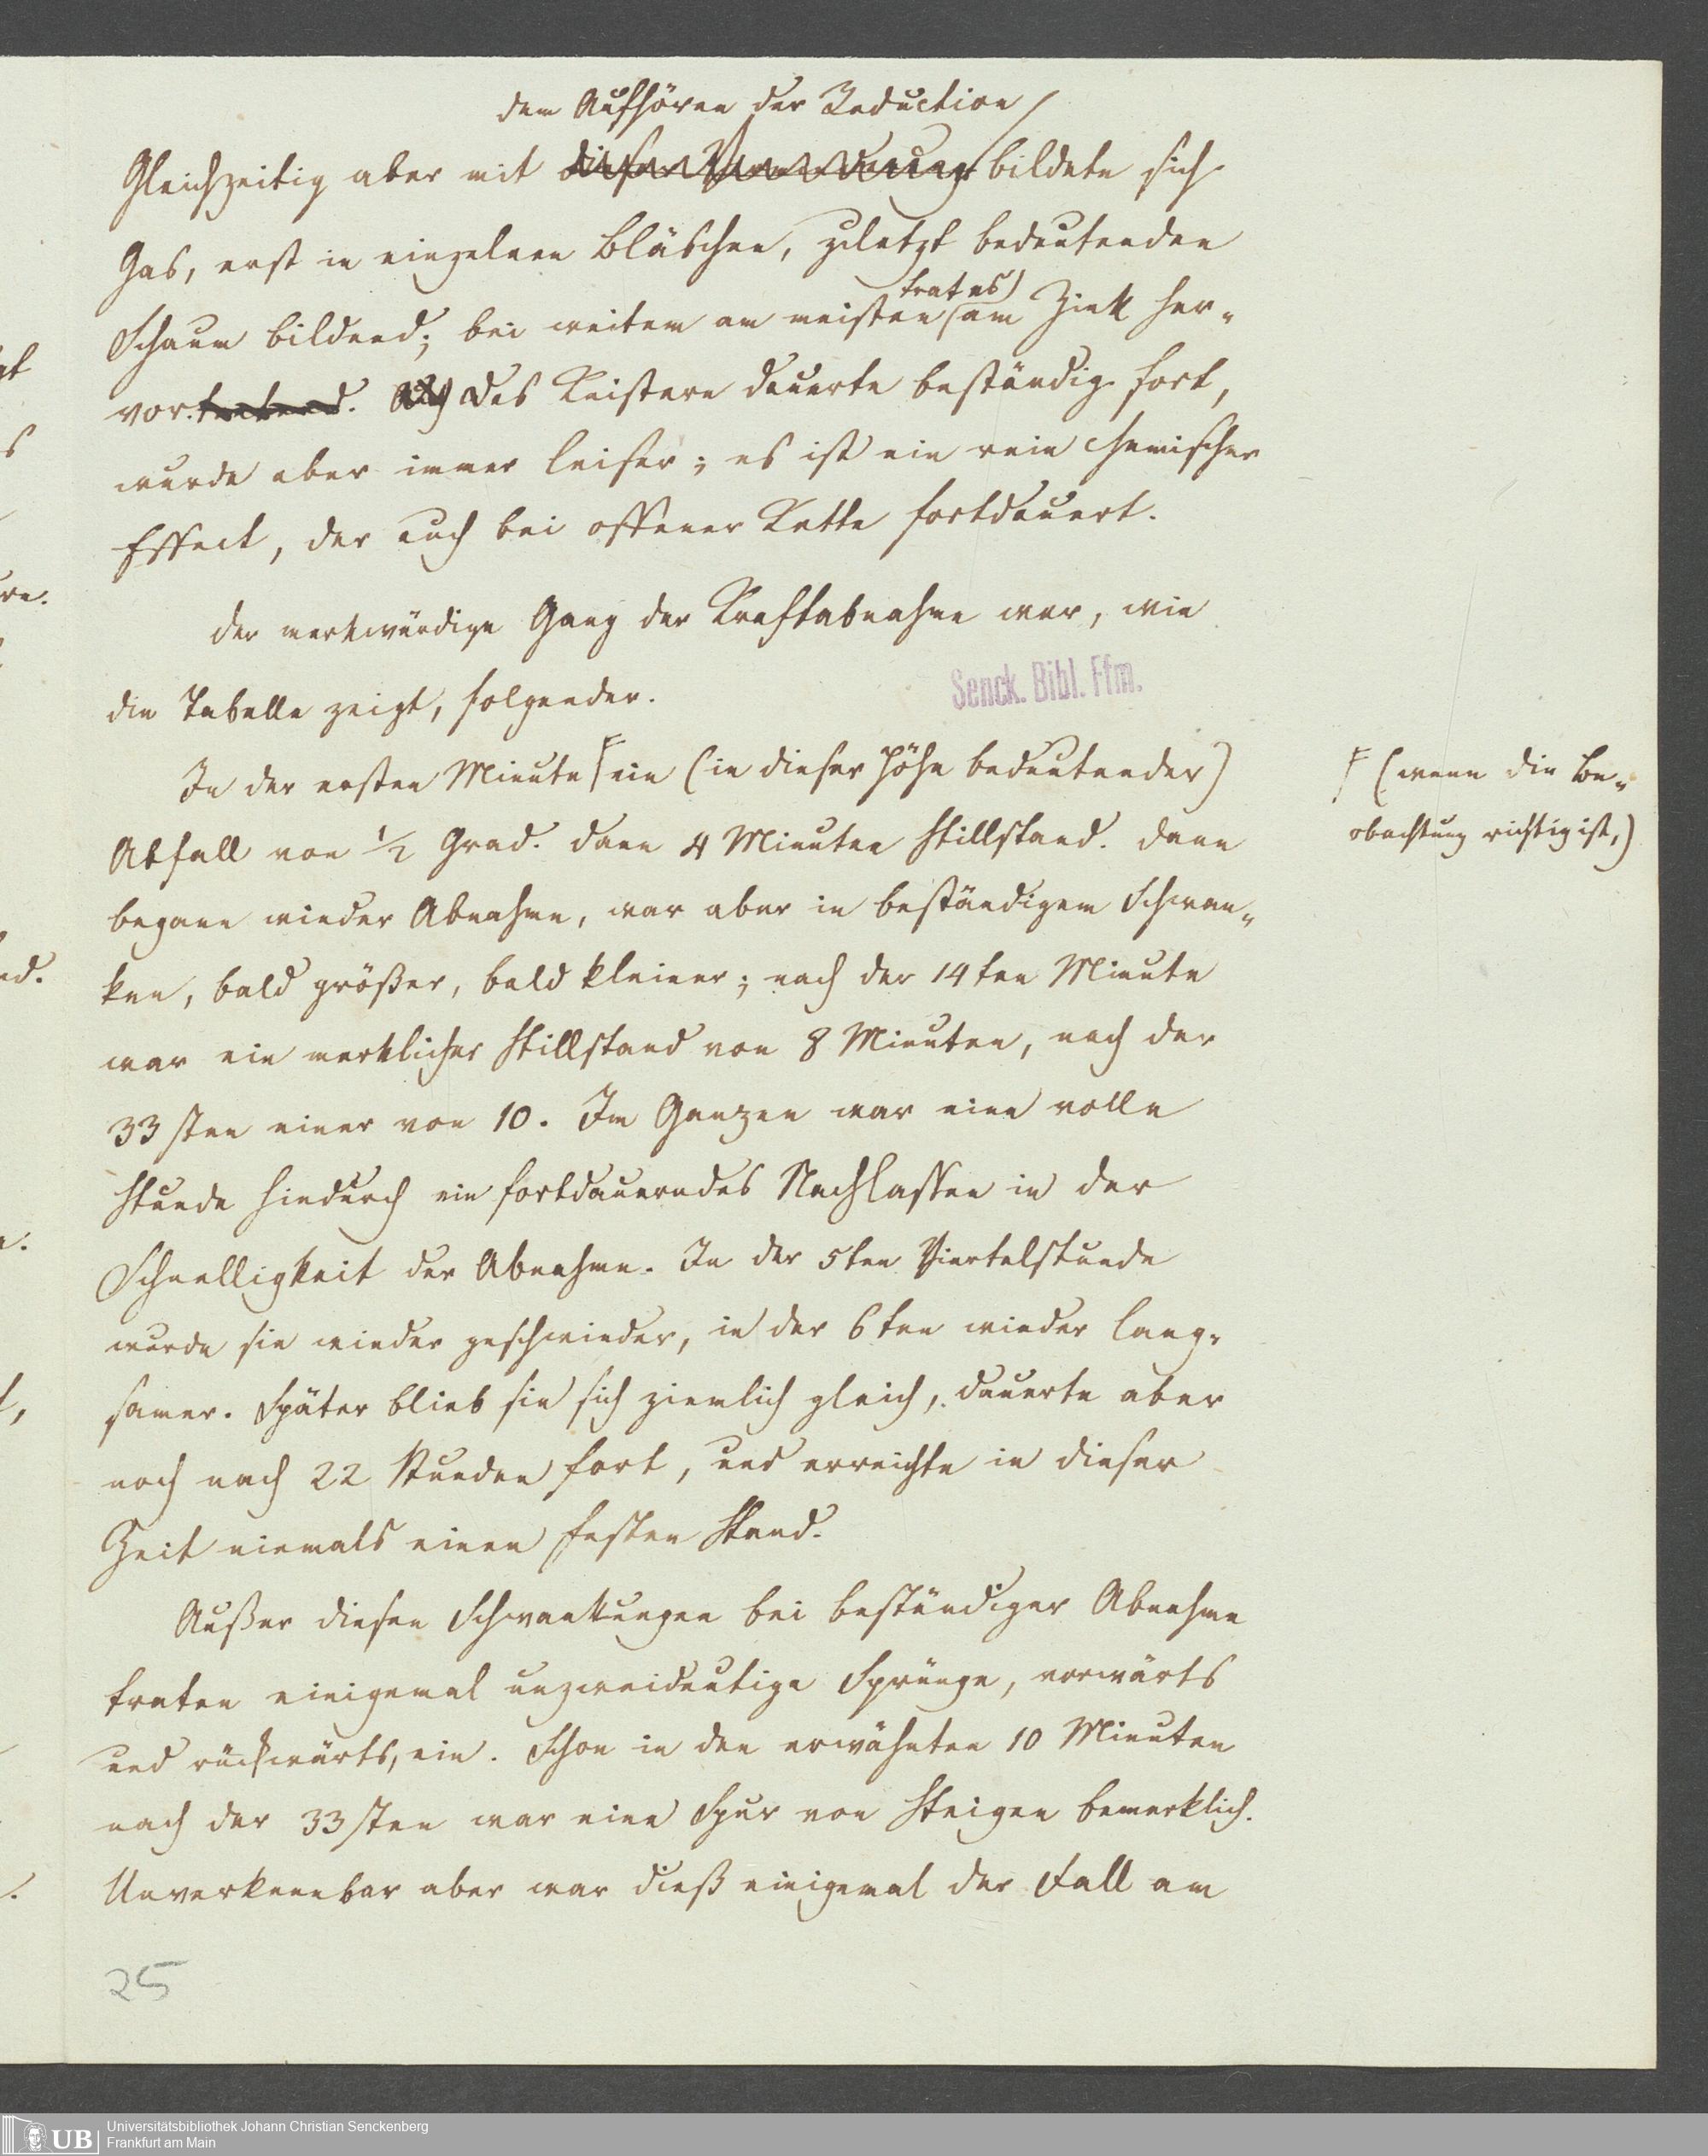 dem Aufhören der Reduction
Gleichzeitig aber mit dieser bildete sich
Gas, erst in einzelnen Bläschen, zuletzt bedeutenden
Schaum bildend; bei weitem am meisten trat es am Zink her-
vortretend. Das Knistern dauerte beständig fort,
wurde aber immer leiser; es ist ein rein chemischer
Effect, der auch bei offener Kette fortdauert.
Der merkwürdige Gang der Kraftabnahme war, wie
die Tabelle zeigt, folgender.
Senck. Bibl. Ffm.
In der ersten Minute ein (in dieser Höhe bedeutender)
(wenn die Be-
obachtung richtig ist,)
Abfall von 1/2 Grad. Dann 4 Minuten Stillstand. Dann
begann wieder Abnahme, war aber in beständigem Schwan-
ken, bald größer, bald kleiner; nach der 14ten Minute
war ein merklicher Stillstand von 8 Minuten, nach der
33sten einer von 10. Im Ganzen war eine volle
Stunde hindurch ein fortdauerndes Nachlassen in der
Schnelligkeit der Abnahme. In der 5ten Viertelstunde
wurde sie wieder geschwinder, in der 6ten wieder lang-
samer. Später blieb sie sich ziemlich gleich, dauerte aber
noch nach 22 Stunden fort, und erreichte in dieser
Zeit niemals einen festen Stand.
Außer diesen Schwankungen bei beständiger Abnahme
traten einigemal unzweideutige Sprünge, vorwärts
und rückwärts, ein. Schon in den erwähnten 10 Minuten
nach der 33sten war eine Spur von Steigen bemerklich.
Unverkennbar aber war dieß einigemal der Fall am
25
UB
Universitätsbibliothek Johann Christian Senckenberg
Frankfurt am Main